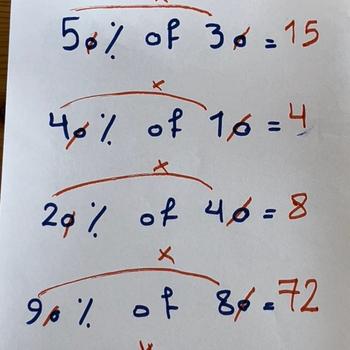 x
50% of 30 = 15
x
40% of 10 = 4
x
20% of 40 = 8
x
90% of 80 = 72
x